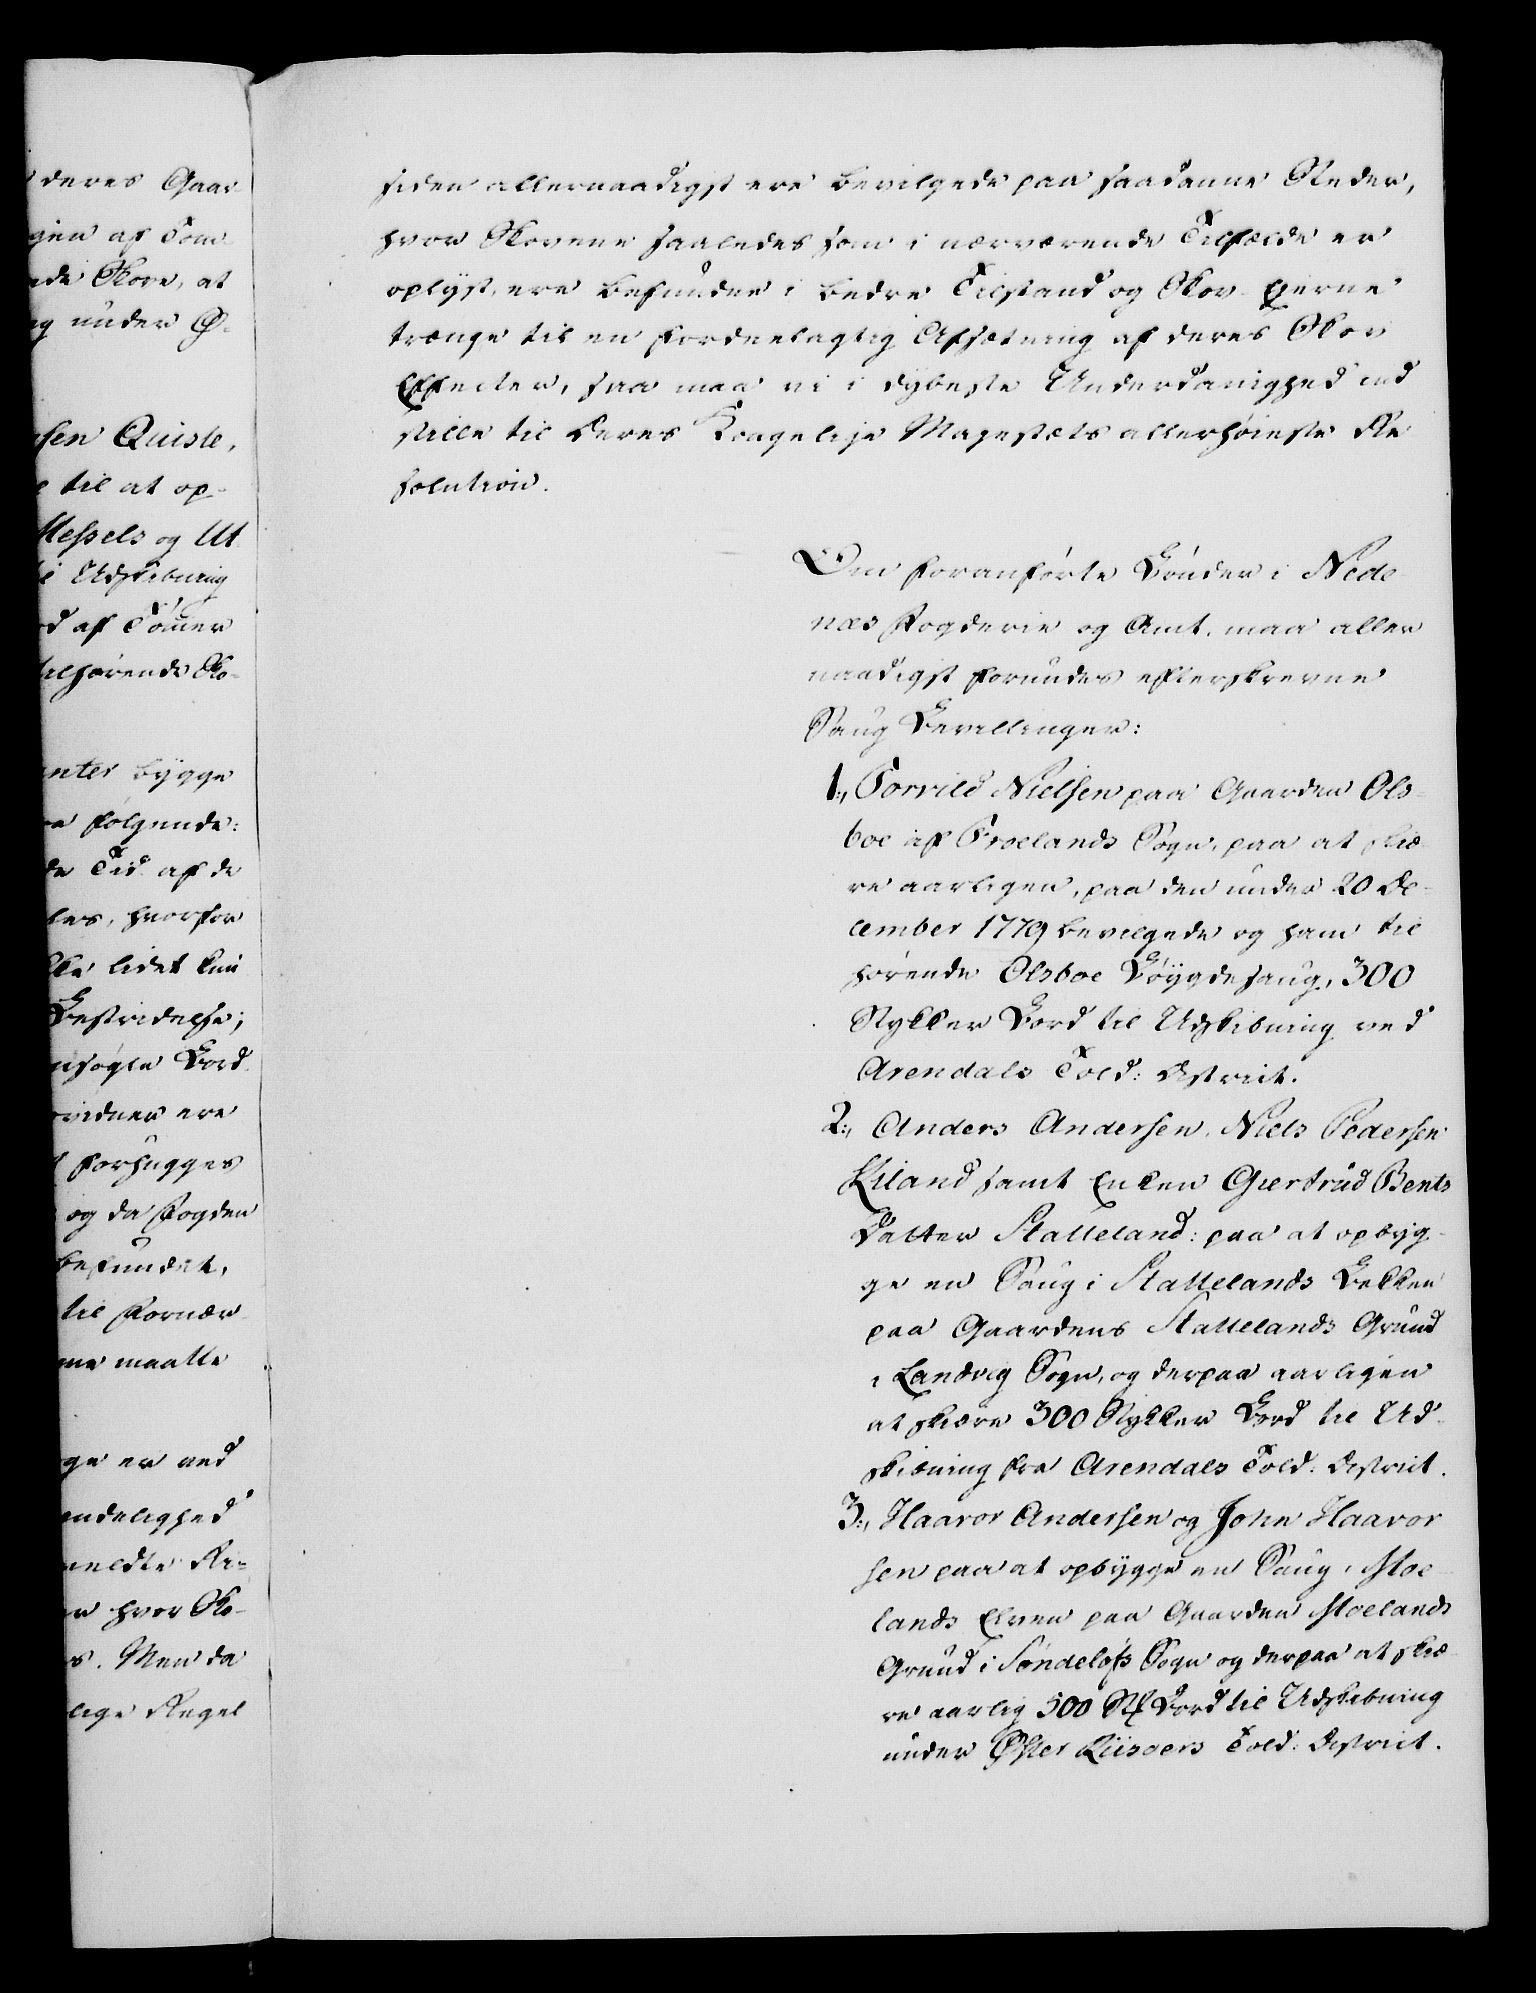 deres Gaar
gen af Tom-
ede Skove, at
ng under Ø-
sen Quiste,
til at op-
Messels og Ut
i Udskibning
d af Tømmer
tilhørende Sko-
enter bygge
følgende:
de Tid af de
les, hvorfor
kke lidet kun
Bestridelse;
nsøgte Bord
vidner ere
forhugges
og da Fogden
befundet,
til Fornær-
me maatte
ge er ved
endelighed
meldte Re-
hvor Sko-
s. Men da
lige Regel
siden allernaadigst ere bevilgede paa saadanne Steder,
hvor Skovene saaledes som i nærværende Tilfælde er
oplyst, ere befunden i bedre Tilstand og Skov-Eierne
trænge til en fordeelagtig Afsætning af deres Skov
Effecter, saa maa vi i dybeste Underdanighed ind
stille til Deres Kongelige Majestæts allerhøieste Re
solution.
Om foranførte Bønder i Nede-
næs Fogderie og Amt, maa aller
naadigst forundes efterskrevne
Saug Bevillinger:
1., Torvild Nielsen paa Gaarden Ols-
boe af Froelands Sogn, paa at skiæ-
re aarligen, paa den under 20 De-
cember 1779 bevilgede og ham til
hørende Olsboe Bøygdesaug, 300
Stykker Bord til Udskibning ved
Arendals Told: District.
2., Anders Andersen, Niels Pedersen
Kiland samt Enken Giertrud Bents
Datter Stalleland: paa at opbyg-
ge en Saug i Stallelands Bekken
paa Gaardens Stallelands Grund
i Landvig Sogn, og derpaa aarligen
at skiære 300 Stykker Bord til Ud-
skibning fra Arendals Told: District.
3., Haavor Andersen og John Haavor
sen paa at opbygge en Saug i Moe-
lands Elven paa Gaarden Moelands
Grund i Søndeløfs Sogn og derpaa at skiæ-
re aarlig 500 St Bord til Udskibning
under Øster Riisøers Told: District.